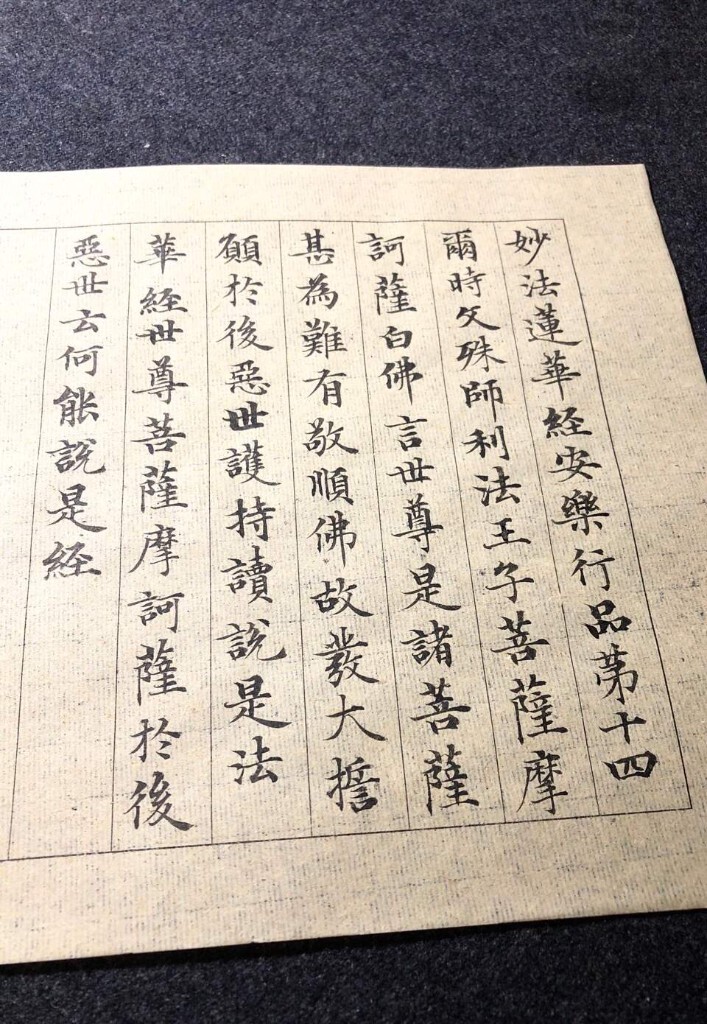 妙法蓮華經安樂行品第十四
爾時文殊師利法王子菩薩摩
訶薩白佛言世尊是諸菩薩
甚為難有敬順佛故發大誓
願於後惡世護持讀說是法
華經世尊菩薩摩訶薩於後
惡世云何能說是經